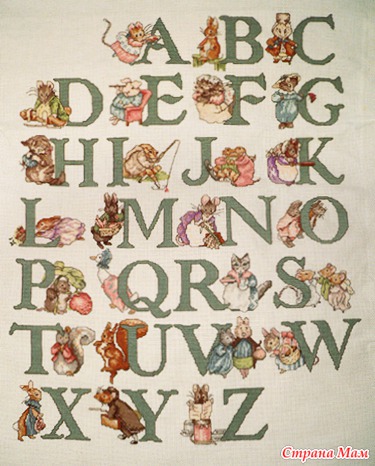 A B C
D E F G
H I J K
L M N O
P Q R S
T U V W
X Y Z
Страна Мам